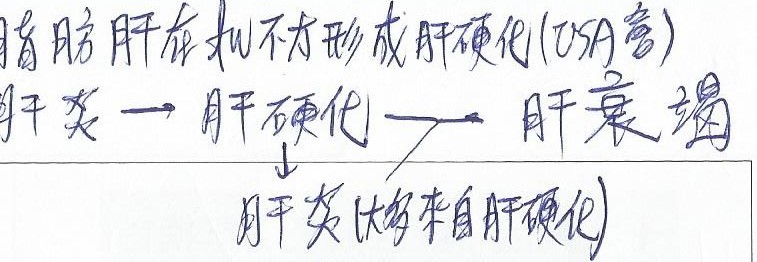 脂肪肝在west不太形成肝硬化(USA高)
肝炎→肝硬化→肝衰竭
↓
肝炎(大多来自肝硬化)